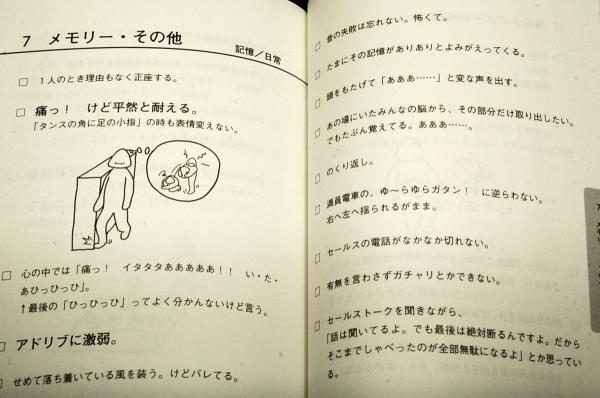 7 メモリー・その他
記憶／日常
□ 1人のとき理由もなく正座する。
□ 痛っ！ けど平然と耐える。
「タンスの角に足の小指」の時も表情変えない。
□ 心の中では「痛っ！ イタタタああああぁ！！ い・た・
あひっひっひ」。
↑最後の「ひっひっひ」ってよく分かんないけど言う。
□ アドリブに激弱。
□ せめて落ち着いている風を装う。けどバレてる。
□ 昔の失敗は忘れない。怖くて。
□ たまにその記憶がありありとよみがえってくる。
□ 頭をもたげて「あああ……」と変な声を出す。
□ あの場にいたみんなの脳から、その部分だけ取り出したい。
でもたぶん覚えてる。あああ……。
□ のくり返し。
□ 満員電車の、ゆ〜らゆらガタン！ に逆らわない。
右へ左へ揺られるがまま。
□ セールスの電話がなかなか切れない。
□ 有無を言わさずガチャリとかできない。
□ セールストークを聞きながら、
「話は聞いてるよ。でも最後は絶対断るんですよ。だから
そこまでしゃべったのが全部無駄になるよ」とか思ってい
る。